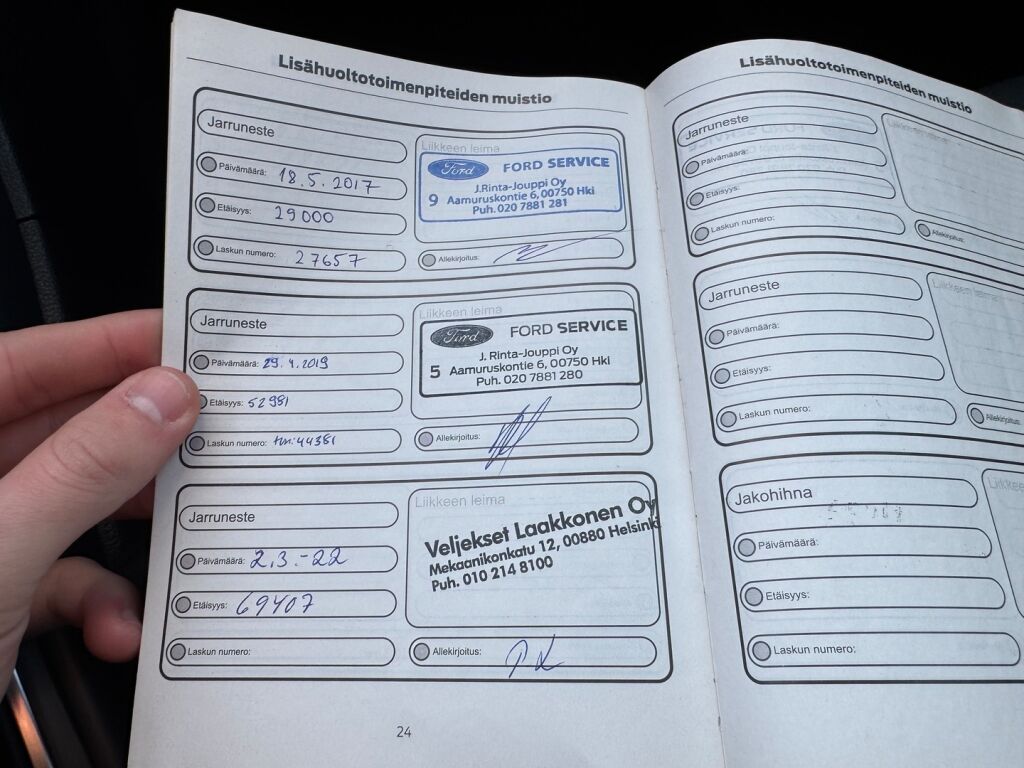 Lisähuoltotoimenpiteiden muistio
Jarruneste
Päivämäärä: 18.5.2017
Etäisyys: 29000
Laskun numero: 27657
Liikkeen leima
Ford FORD SERVICE
J.Rinta-Jouppi Oy
9 Aamuruskontie 6, 00750 Hki
Puh. 020 7881 281
Allekirjoitus:
Jarruneste
Päivämäärä: 29.4.2019
Etäisyys: 52981
Laskun numero: tm:44381
Liikkeen leima
Ford FORD SERVICE
J. Rinta-Jouppi Oy
5 Aamuruskontie 6, 00750 Hki
Puh. 020 7881 280
Allekirjoitus:
Jarruneste
Päivämäärä: 2.3.-22
Etäisyys: 69407
Laskun numero:
Liikkeen leima
Veljekset Laakkonen Oy
Mekaanikonkatu 12, 00880 Helsinki
Puh. 010 214 8100
Allekirjoitus: PK
24
Lisähuoltotoimenpiteiden muistio
Jarruneste
Päivämäärä:
Etäisyys:
Laskun numero:
Allekirjoitus:
Jarruneste
Päivämäärä:
Etäisyys:
Laskun numero:
Liikkeen leima
Allekirjoitus:
Jakohihna
Päivämäärä:
Etäisyys:
Laskun numero: